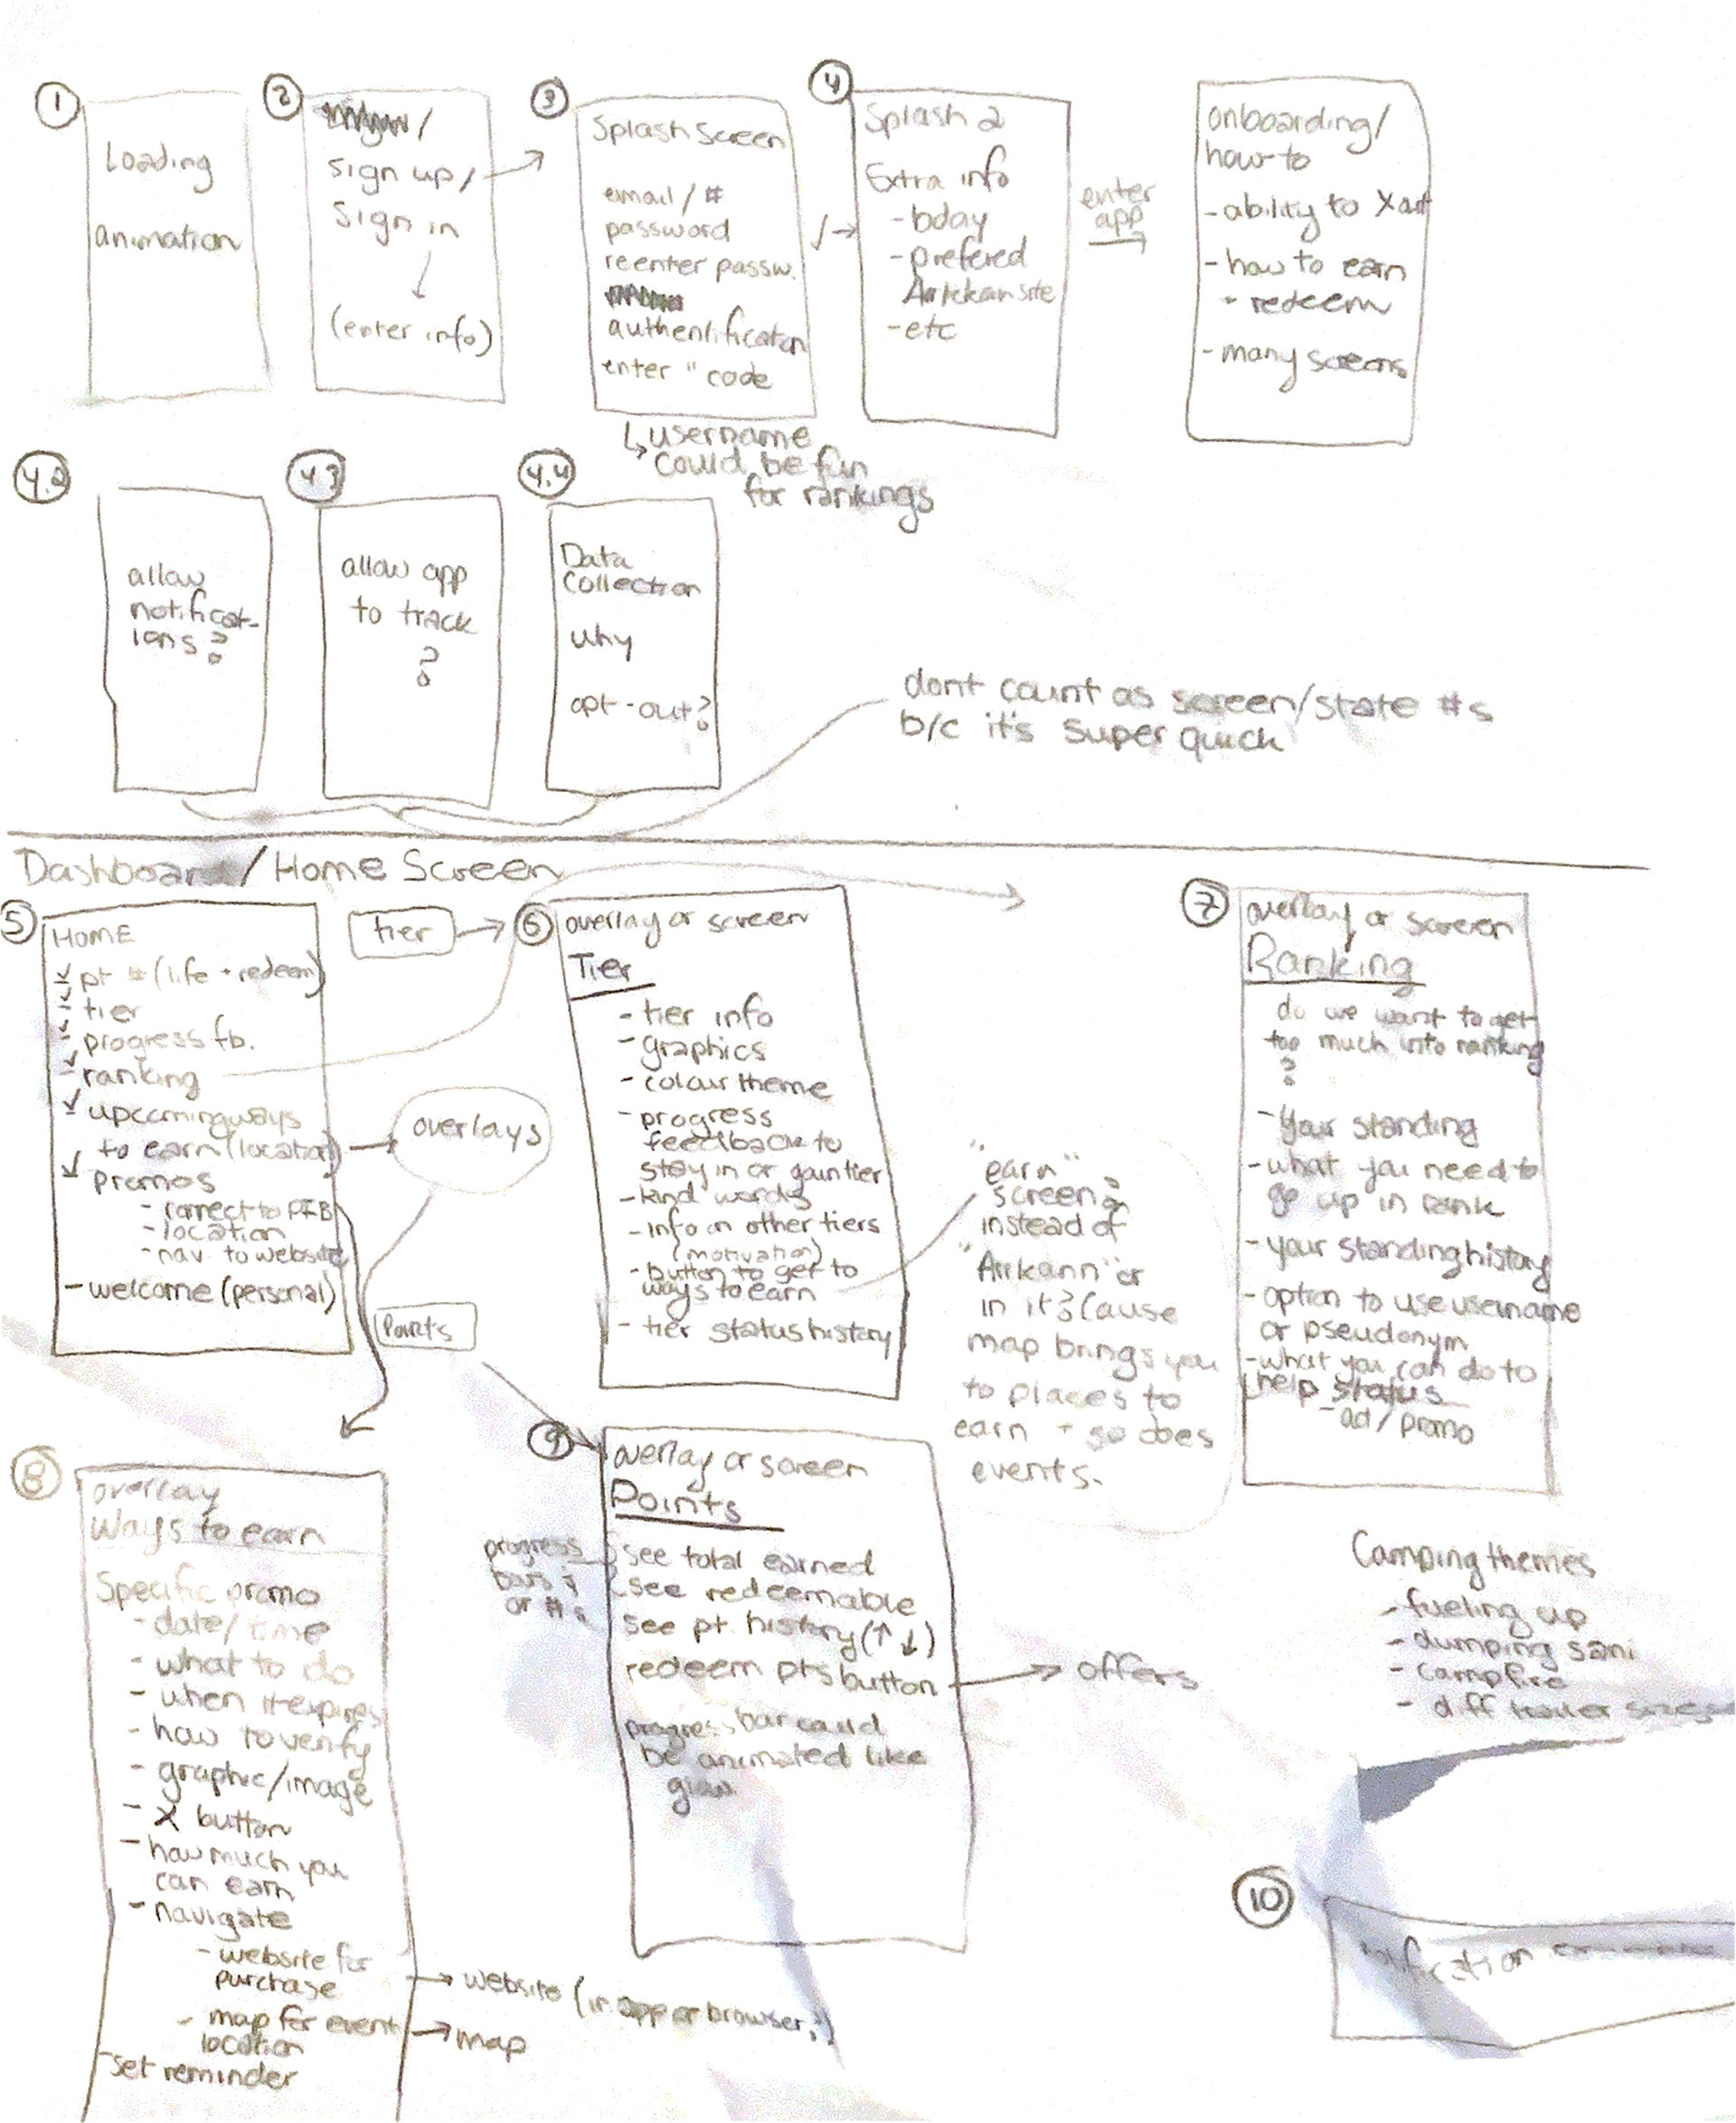 1
Loading
animation
2
/
sign up/
Sign in
(enter info)
3
Splash Screen
email / #
password
reenter passw.
authentification
enter " code
↳ username
could be fun
for rankings
4
Splash 2
Extra info
- bday
- prefered
Arrkann site
- etc
enter
app
onboarding/
how-to
- ability to X out
- how to earn
+ redeem
- many screens
4.2
allow
notificat-
ions?
4.3
allow app
to track
?
4.4
Data
Collection
why
opt-out?
dont count as screen/state #s
b/c it's super quick
Dashboard/Home Screen
5
HOME
pt # (life + redeem)
- tier
- progress fb.
- ranking
- upcoming ways
to earn (location)
promos
- connect to PFB
- location
- nav. to website
- welcome (personal)
tier
overlays
Points
6
overlay or screen
Tier
- tier info
- graphics
- colour theme
- progress
feedback to
stay in or gain tier
- kind words
- info on other tiers
(motivation)
- button to get to
ways to earn
- tier status history
"earn"
screen?
instead of
"Arrkann" or
in it? (cause
map brings you
to places to
earn + so does
events.
7
overlay or screen
Ranking
do we want to get
too much into ranking
?
- Your standing
- what you need to
go up in rank
- your standing history
- option to use username
or pseudonym
- what you can do to
help status
- ad / promo
8
overlay
Ways to earn
Specific promo
- date/time
- what to do
- when it expires
- how to verify
- graphic/image
- X button
- how much you
can earn
- navigate
- website for
purchase
- map for event
location
- set reminder
→ website (in app or browser?)
→ map
9
overlay or screen
Points
see total earned
see redeemable
see pt. history (↑↓)
redeem pts button
progress bar could
be animated like
glow
progress
bars &
or #s
→ offers
Camping themes
- fueling up
- dumping sani
- campfire
- diff trailer sizes
10